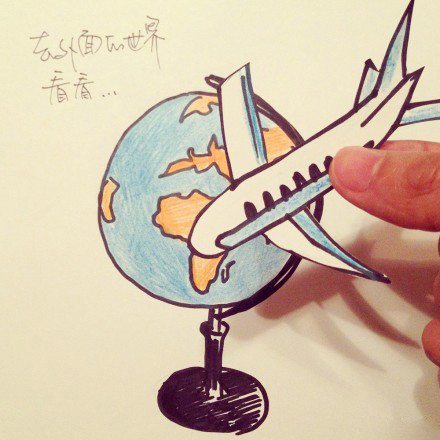 去外面的世界
看看...